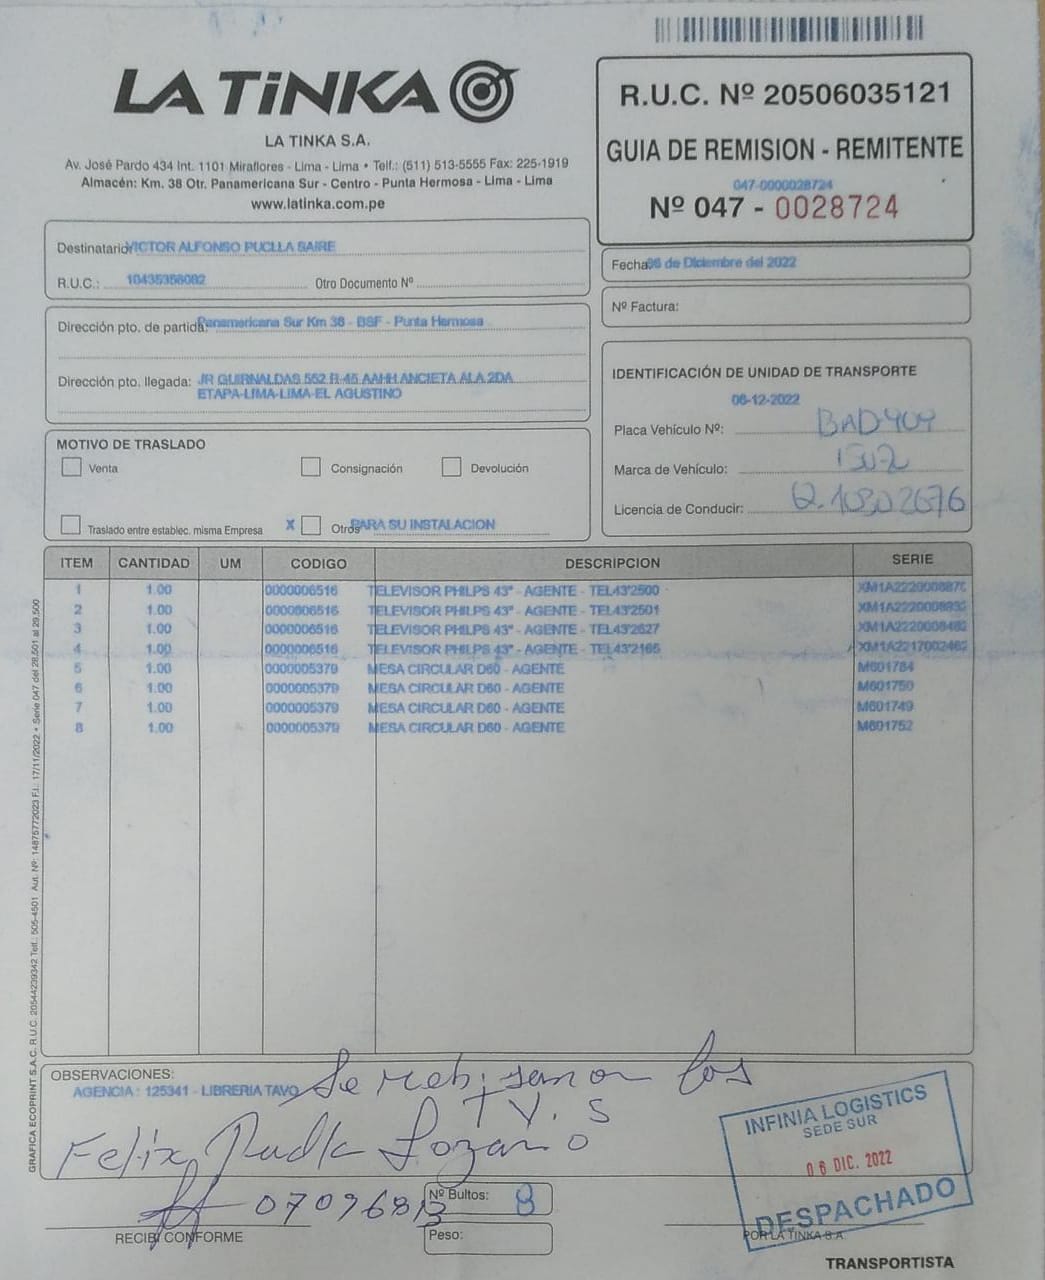 LA TiNKA
LA TINKA S.A.
Av. José Pardo 434 Int. 1101 Miraflores - Lima - Lima • Telf.: (511) 513-5555 Fax: 225-1919
Almacén: Km. 38 Otr. Panamericana Sur - Centro - Punta Hermosa - Lima - Lima
www.latinka.com.pe
R.U.C. Nº 20506035121
GUIA DE REMISION - REMITENTE
047-0000028724
Nº 047 - 0028724
Destinatario VICTOR ALFONSO PUCLLA SAIRE
R.U.C.: Otro Documento Nº
Fecha: 06 de Diciembre del 2022
Nº Factura:
Dirección pto. de partida: Panamericana Sur Km 38 - BSF - Punta Hermosa
Dirección pto. llegada: JR GUIRNALDAS 552 AAHH ANCIETA ALA 2DA
ETAPA-LIMA-LIMA-EL AGUSTINO
IDENTIFICACIÓN DE UNIDAD DE TRANSPORTE
06-12-2022
Placa Vehículo Nº: BAD909
Marca de Vehículo: ISUZ
Licencia de Conducir: Q.10302676
MOTIVO DE TRASLADO
Venta Consignación Devolución
Traslado entre establec. misma Empresa X Otros PARA SU INSTALACION
ITEM CANTIDAD UM CODIGO DESCRIPCION SERIE
1 1.00 0000006516 TELEVISOR PHILPS 43" - AGENTE - TEL43'2500
2 1.00 0000006516 TELEVISOR PHILPS 43" - AGENTE - TEL43'2501
3 1.00 0000006516 TELEVISOR PHILPS 43" - AGENTE - TEL43'2627
4 1.00 0000006516 TELEVISOR PHILPS 43" - AGENTE - TEL43'2165
5 1.00 0000005379 MESA CIRCULAR D60 - AGENTE M601784
6 1.00 0000005379 MESA CIRCULAR D60 - AGENTE M601750
7 1.00 0000005379 MESA CIRCULAR D60 - AGENTE M601749
8 1.00 0000005379 MESA CIRCULAR D60 - AGENTE M601752
GRAFICA ECOPRINT S.A.C. R.U.C. 20544239342 Telf.: 505-4501 Aut. Nº: 14875772023 F.I.: 17/11/2022 • Serie 047 del 28,501 al 29,500
OBSERVACIONES:
AGENCIA : 125341 - LIBRERIA TAVO Se los
TV.S
Felix Puclla Lozano
07096813
Nº Bultos: 8
Peso:
RECIBI CONFORME
INFINIA LOGISTICS
SEDE SUR
06 DIC. 2022
DESPACHADO
POR LA TINKA S.A.
TRANSPORTISTA